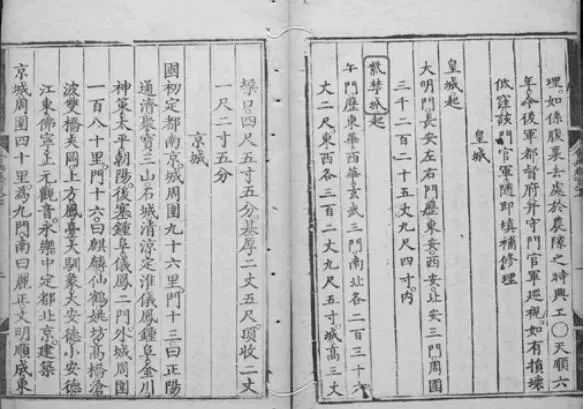 理。如係腹裏去處於農隙之時興工○天順六
年令後軍都督府并守門官軍巡視。如有損壞
低窪該門官軍隨即填補修理
皇城
皇城起
大明門長安左右門歷東安西安北安三門周圍
三千二百二十五丈九尺四寸內
紫禁城起
午門歷東華西華玄武三門南北各二百三十六
丈二尺。東西各三百二丈九尺五寸。城高三丈
垜口四尺五寸五分。基厚二丈五尺。頂收二丈
一尺二寸五分
京城
國初定都南京。城周圍九十六里。門十三。曰正陽
通濟聚寶三山石城清涼定淮儀鳳鍾阜金川
神策太平朝陽。後塞鍾阜儀鳳二門。外城周圍
一百八十里。門十六。曰麒麟仙鶴姚坊高橋滄
波雙橋夾岡上方鳳臺大馴象大安德小安德
江東佛寧上元觀音。永樂中定都北京。建築
京城周圍四十里。為九門。南曰麗正文明順成東